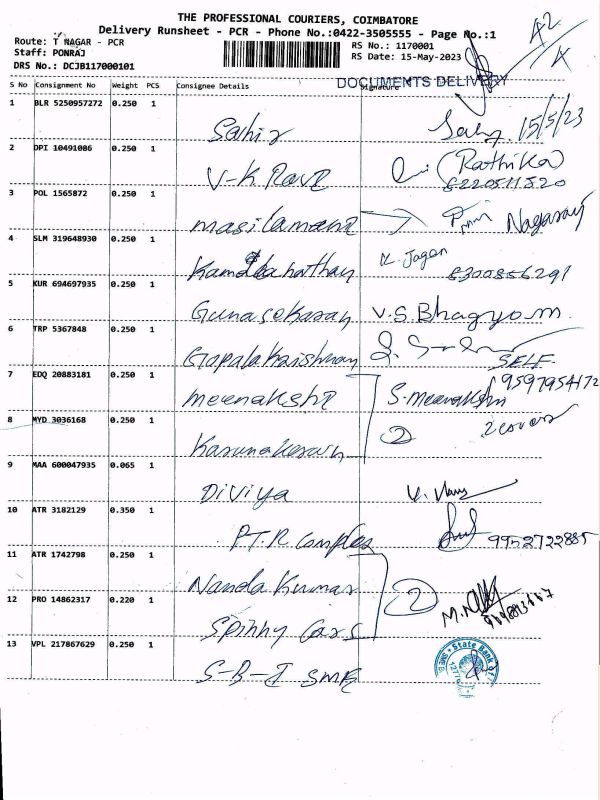 THE PROFESSIONAL COURIERS, COIMBATORE
Delivery Runsheet - PCR - Phone No.:0422-3505555 - Page No.:1
Route: T NAGAR - PCR
Staff: PONRAJ
DRS No.: DCJB117000101
RS No.: 1170001
RS Date: 15-May-2023
A2/4
DOCUMENTS DELIVERY
S No Consignment No Weight PCS Consignee Details Signature
1 BLR 5250957272 0.250 1 Sahir 15/5/23
2 DPI 10491086 0.250 1 V-K Ravi (Rathika)
8220511520
3 POL 1565872 0.250 1 masilamani Nagaraj
4 SLM 319648930 0.250 1 Kamalanathan K. Jagan
8300856291
5 KUR 694697935 0.250 1 Gunasekaran V.S. Bhagyam.
6 TRP 5367848 0.250 1 Gopalakrishnan
SELF
7 EDQ 20883181 0.250 1 meenakshi S. meenakshi 9597954172
8 MYD 3036168 0.250 1 Karunakaran 2 2 covers
9 MAA 600047935 0.065 1 Diviya
10 ATR 3182129 0.350 1 P.T.R Complex 9952722885
11 ATR 1742798 0.250 1 Nanda Kumar 2
12 PRO 14862317 0.220 1 Spinny Cars
13 VPL 217867629 0.250 1 S-B-I SME
State Bank of